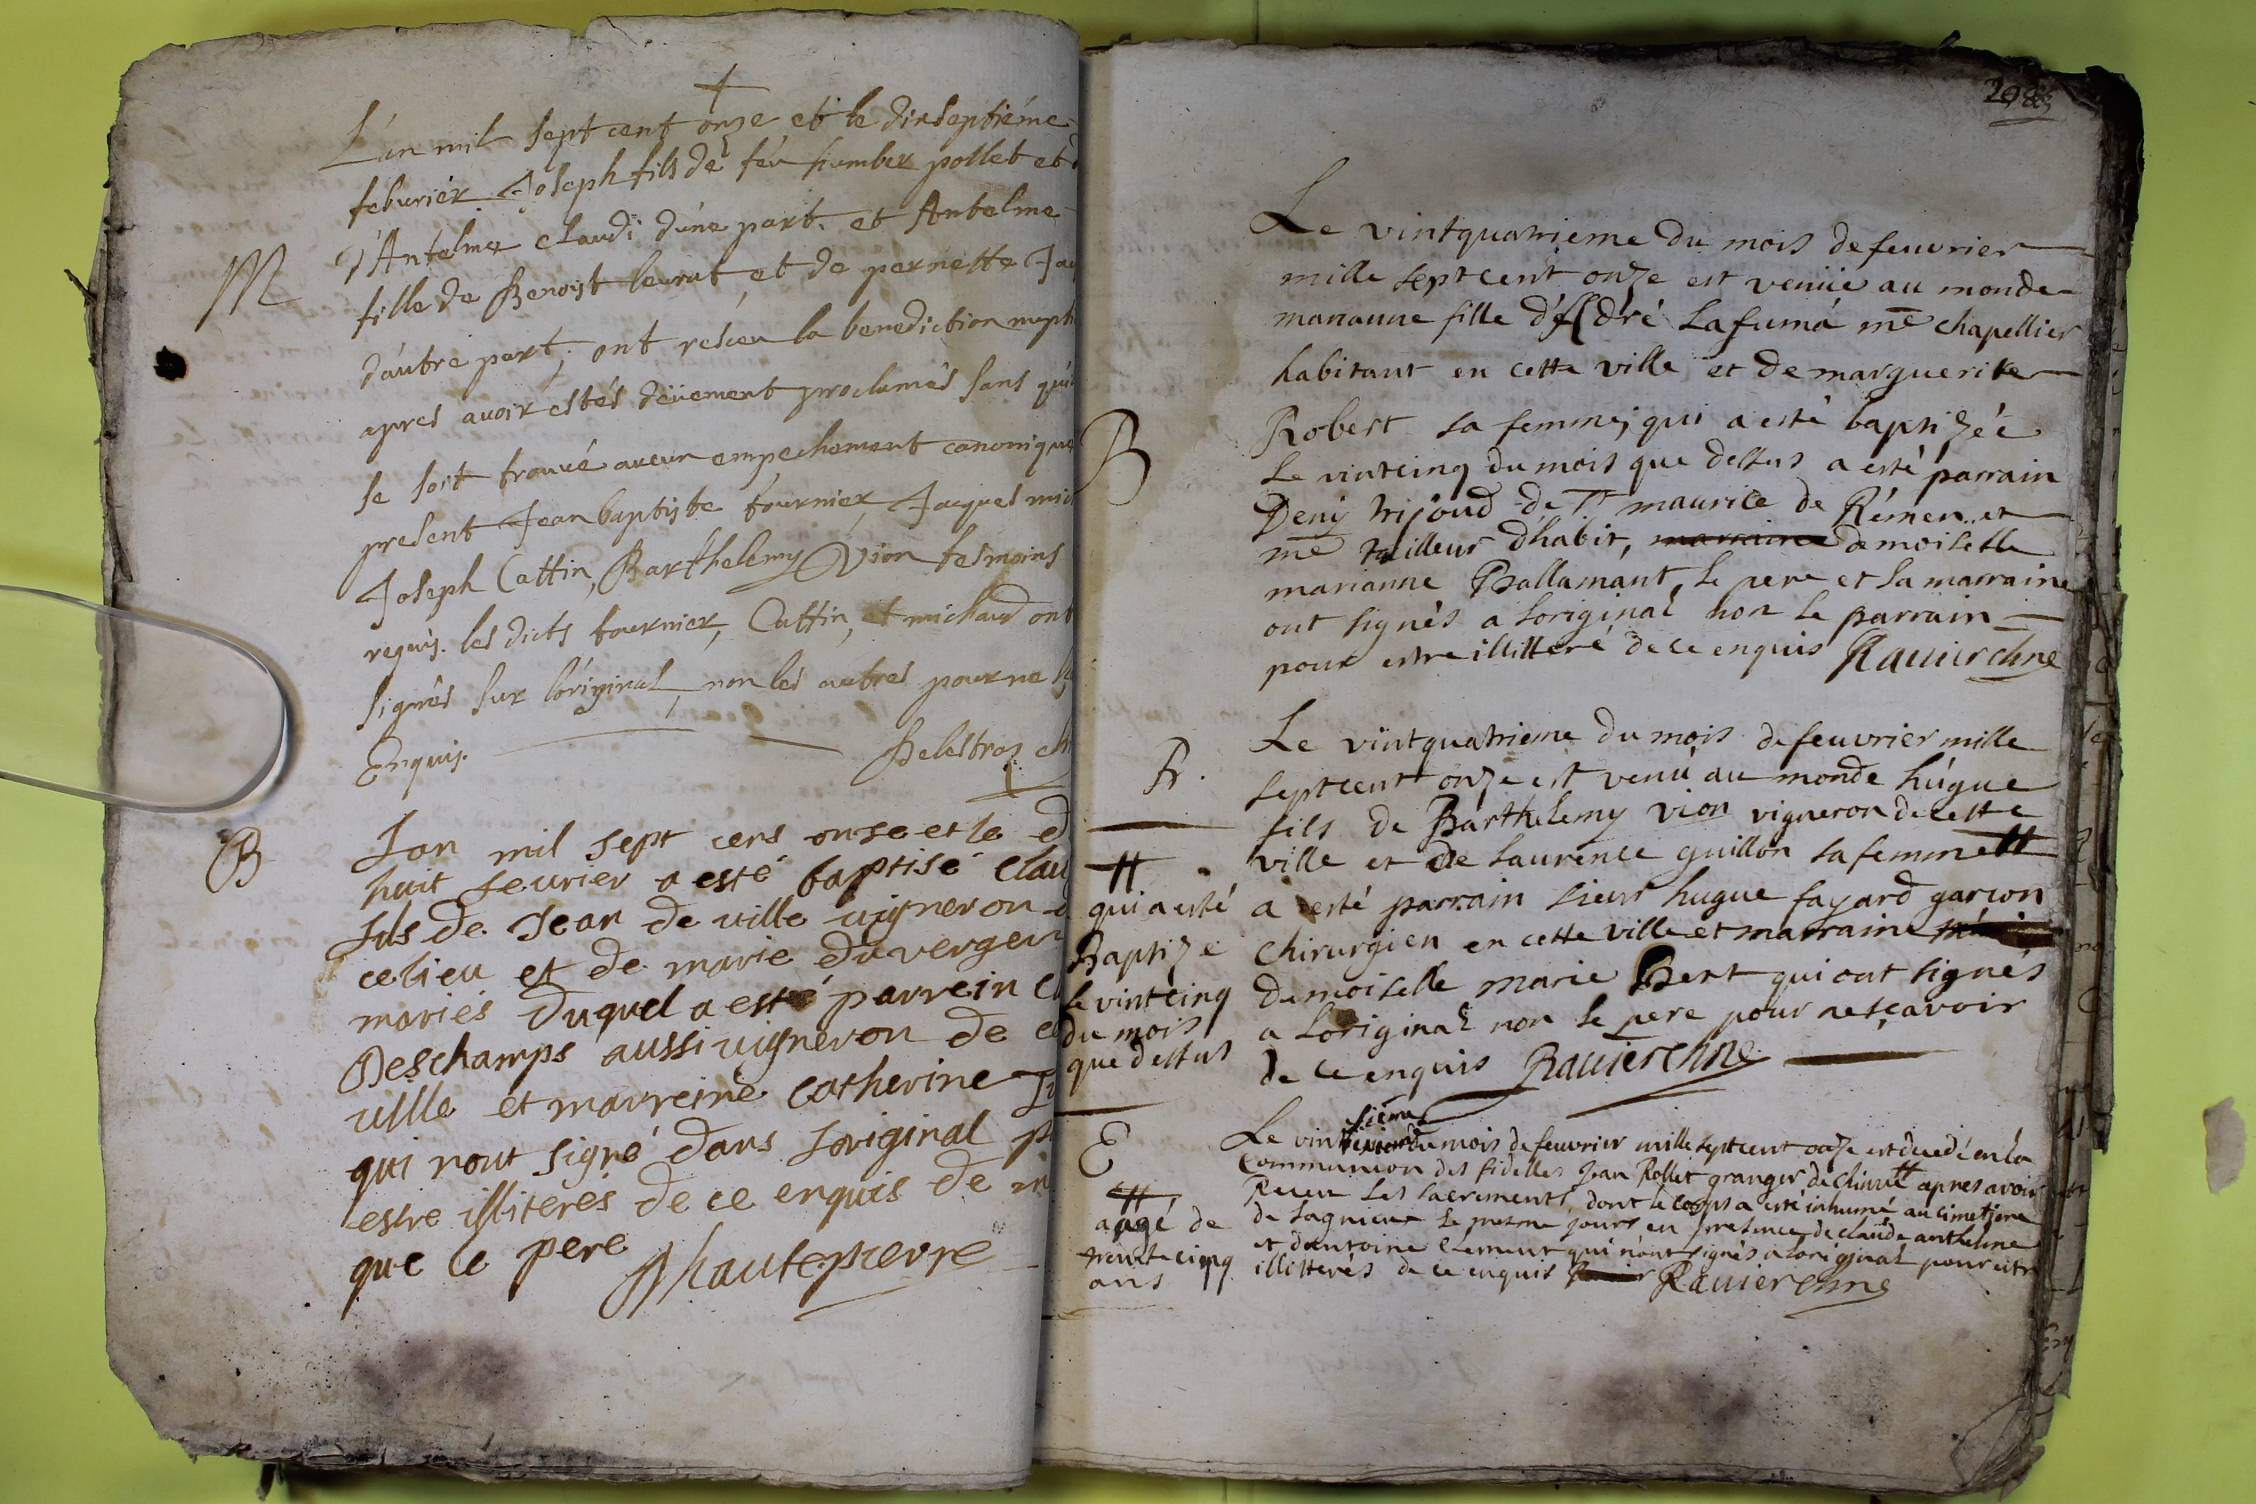 L'an mil sept cent onze et le dixseptiéme
feburiér Joseph fils de feu humber pollet et
M
d'Antelme claudi d'úne part. et Antelme
fille de Benoist leurat, et de pernette
d'autre part, ont reseu la benediction nupt
apres auoir estés dëuement proclamés sans qu'il
se soit trouué aucun empechement canonique
present Jean baptiste tournier Jacques mic
Joseph Cattin, Barthelemy Vion tesmoins
requis. les dicts tournier, Cattin, et michaud ont
signés sur l'original, non les autres pour ne
Enquis.
Delestraz
B
Lan mil sept cens onse et le
huit feurier a esté baptisé clau
fils de Jean de ville uigneron
ce lieu et de marie duverger
mariés duquel a esté parrein cl
Deschamps aussi uigneron de ce
uille et marreine catherine
qui nont signé dans loriginal p
estre illiterés de ce enquis de m
que le pere
Dhautepierre
298
Le vintquatrieme du mois de feuvrier
mille septcent onze est venüe au monde
marianne fille d'André Lafumá mē chapellier
habitant en cette ville et de marguerite
B
Robert sa femme, qui a esté baptizéé
le vintcinq du mois que dessus a esté parrain
Deny trigoud de St maurice de Rémen et
mē tailleur d'habit, demoiselle
marianne Ballamant, le pere et la marraine
ont signés a loriginal non le parrain
pour estre illitteré de ce enquis Rauier chne
Le vintquatrieme du mois de feuvrier mille
B.
septcent onze est venú au monde húgue
fils de Barthelemy vion vigneron de cette
ville et de Laurence guillon sa femme #
#
qui a esté
Baptizé
le vintcinq
du mois
que dessus
a esté parrain sieur hugue fayard garcon
chirurgien en cette ville et marraine
demoiselle marie Bert qui ont signés
a Loriginal non le pere pour nesçavoir
de ce enquis Rauier chne
E
Le vint sieme du mois de feuvrier mille septcent onze est decedé en la
communion des fidelles Jean Rollet granger de # apres avoir
#
aagé de
trente cinq
ans
Receu les sacrements, dont le corps a esté inhumé au cimetiere
de Lagnieu le mesme jours en presence de claude anthelme
et d'antoine clement qui n'ont signés a loriginal pour estre
illitterés de ce enquis Rauier chne